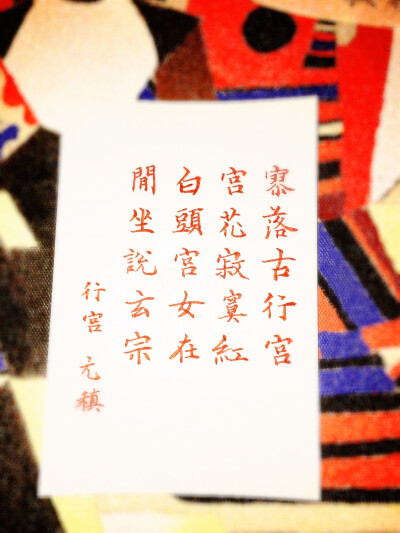 寥落古行宫
宫花寂寞紅
白頭宫女在
閒坐說玄宗
行宫 元稹